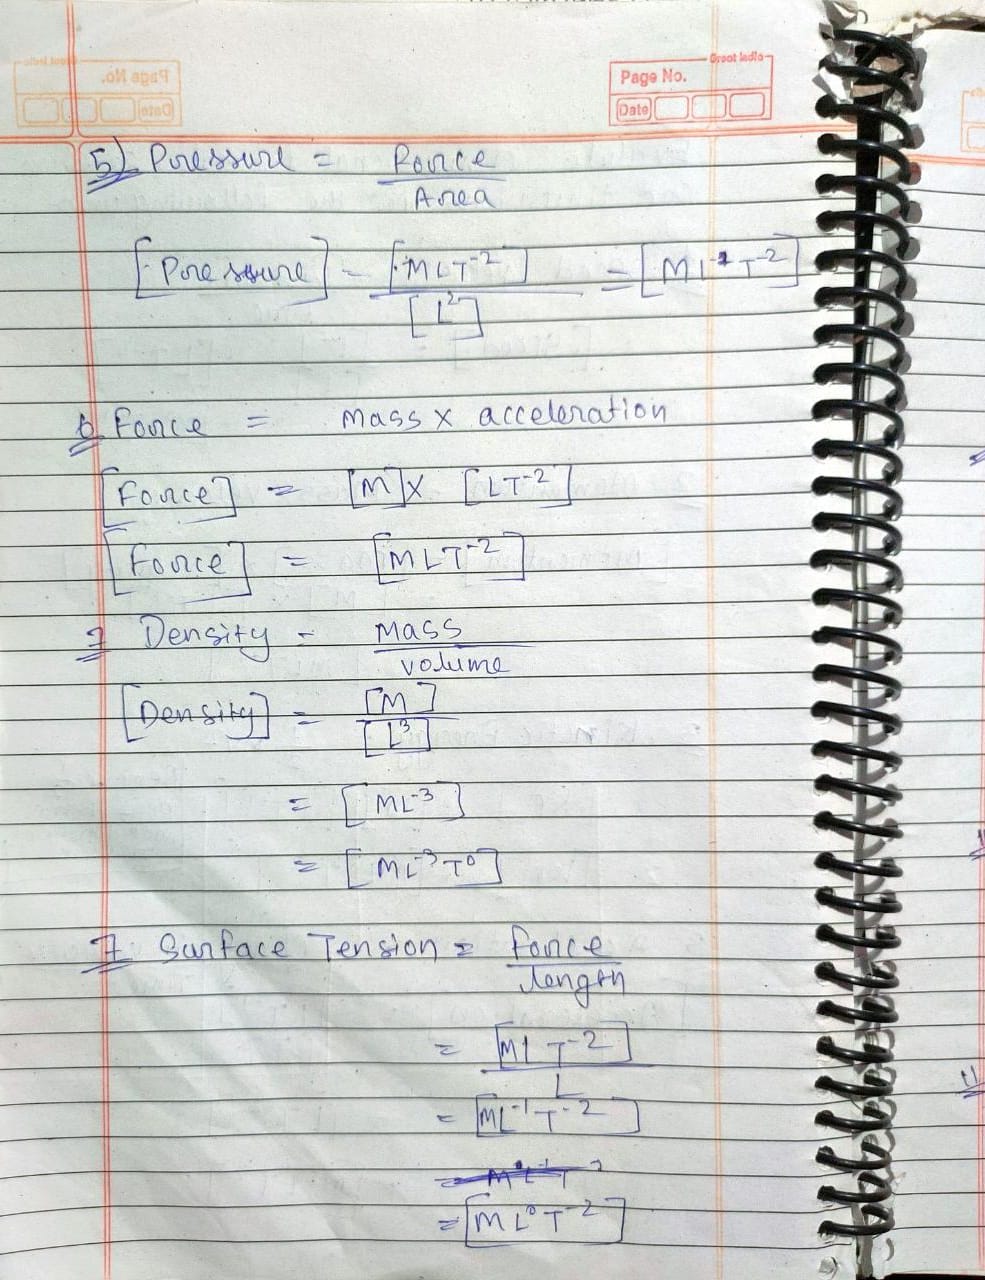 Great India
Page No.
Date
5) Pressure = Force / Area
[Pressure] = [MLT⁻²] / [L²] = [ML⁻¹T⁻²]
6 Force = Mass x acceleration
[Force] = [M] x [LT⁻²]
[Force] = [MLT⁻²]
7 Density = Mass / volume
[Density] = [M] / [L³]
= [ML⁻³]
= [ML⁻³T⁰]
7 Surface Tension = force / length
= [MLT⁻²] / L
= [ML⁻¹T⁻²]
= [ML⁰T⁻²]